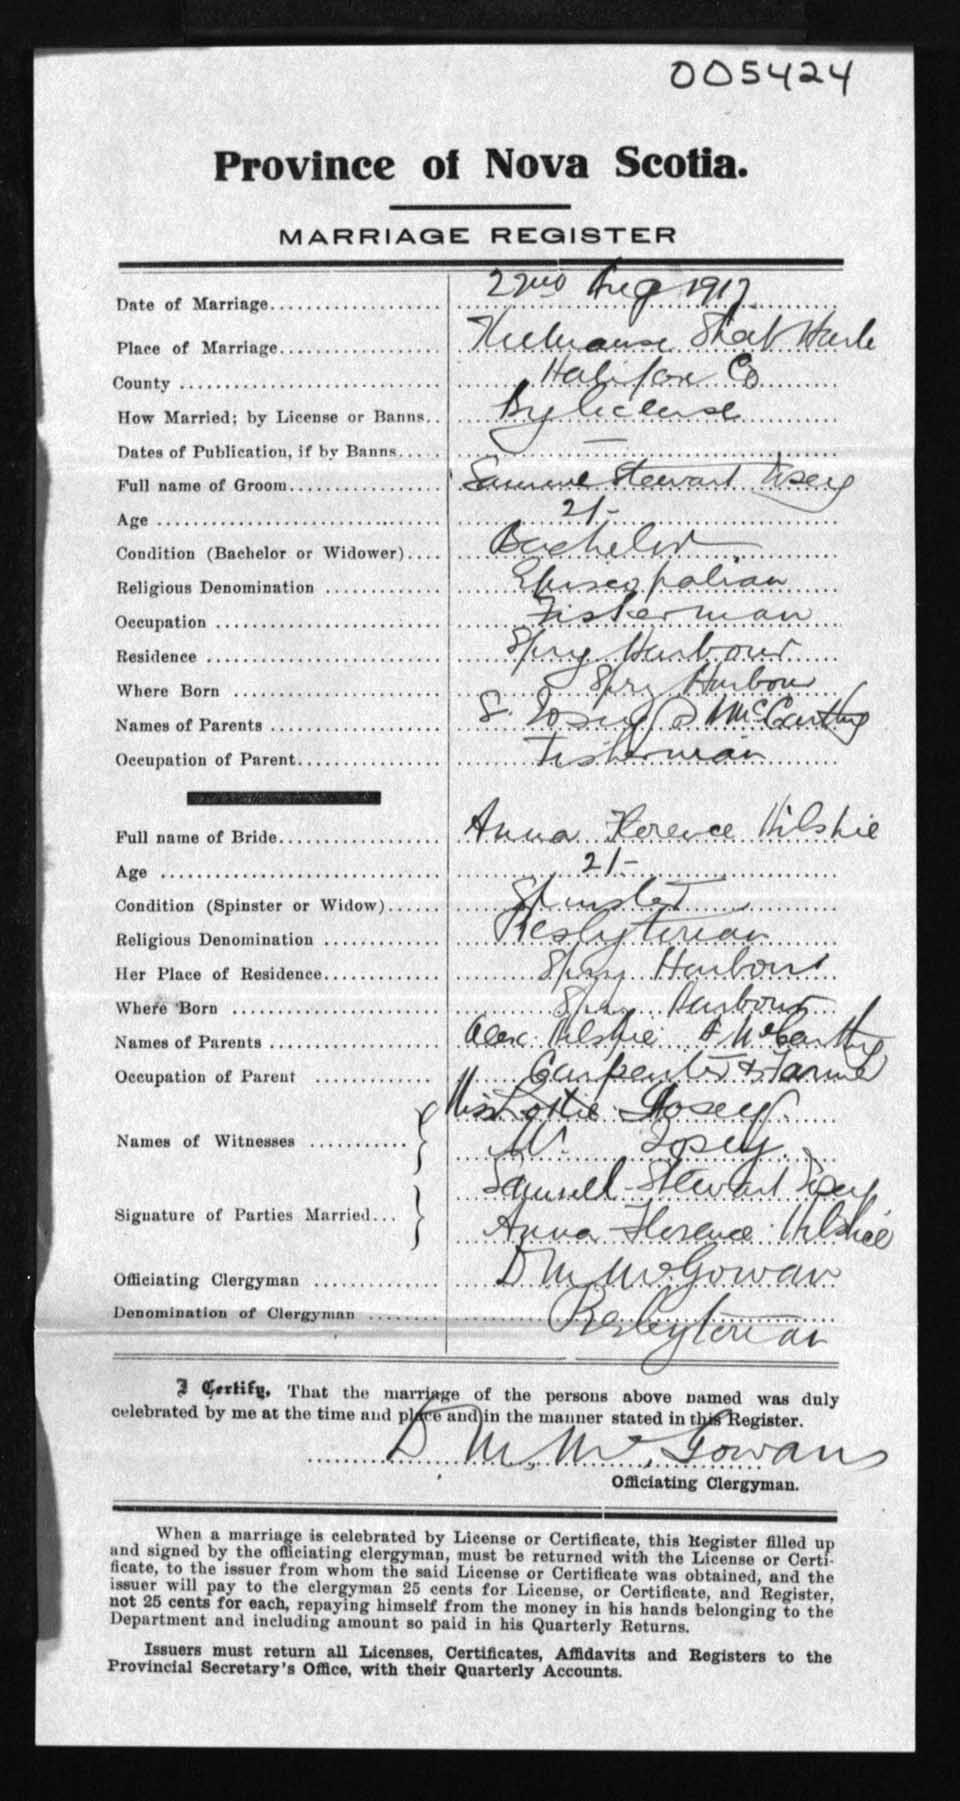 005424
Province of Nova Scotia.
MARRIAGE REGISTER
Date of Marriage 22nd Aug 1917
Place of Marriage
County Halifax Co
How Married; by License or Banns By license
Dates of Publication, if by Banns —
Full name of Groom Samuel Stewart
Age 21-
Condition (Bachelor or Widower) Bachelor
Religious Denomination Episcopalian
Occupation Fisherman
Residence Spry Harbour
Where Born Spry Harbour
Names of Parents S. McCarthy
Occupation of Parent Fisherman
Full name of Bride Anna Florence Hilshie
Age 21-
Condition (Spinster or Widow) Spinster
Religious Denomination Presbyterian
Her Place of Residence Spry Harbour
Where Born Spry Harbour
Names of Parents Alex Hilshie McCarthy
Occupation of Parent Carpenter & Farmer
Miss Lottie
Names of Witnesses
Samuell Stewart
Signature of Parties Married
Anna Florence Hilshie
Officiating Clergyman D M McGowan
Denomination of Clergyman Presbyterian
I Certify, That the marriage of the persons above named was duly
celebrated by me at the time and place and in the manner stated in this Register.
D M. McGowan
Officiating Clergyman.
When a marriage is celebrated by License or Certificate, this Register filled up
and signed by the officiating clergyman, must be returned with the License or Certi-
ficate, to the issuer from whom the said License or Certificate was obtained, and the
issuer will pay to the clergyman 25 cents for License, or Certificate, and Register,
not 25 cents for each, repaying himself from the money in his hands belonging to the
Department and including amount so paid in his Quarterly Returns.
Issuers must return all Licenses, Certificates, Affidavits and Registers to the
Provincial Secretary's Office, with their Quarterly Accounts.